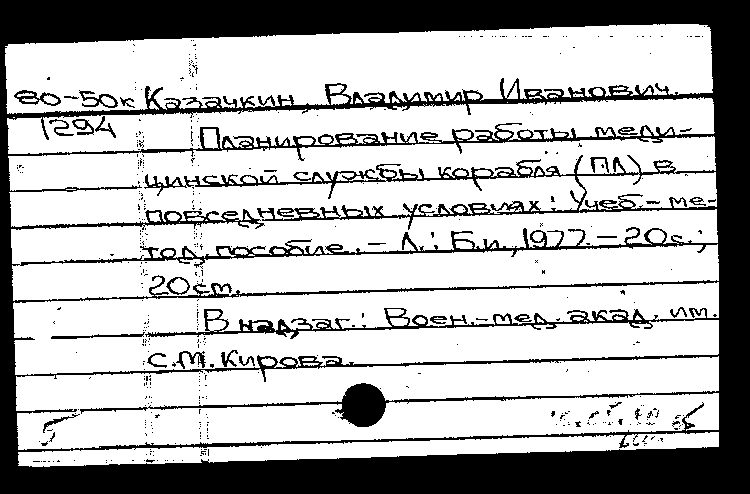 80-50к Казачкин, Владимир Иванович.
1294
Планирование работы меди-
цинской службы корабля (ПЛ) в
повседневных условиях: Учеб.-ме-
тод. пособие. - Л.: Б.и., 1977. - 20с.;
20см.
В надзаг.: Воен.-мед. акад. им.
С.М. Кирова.
5